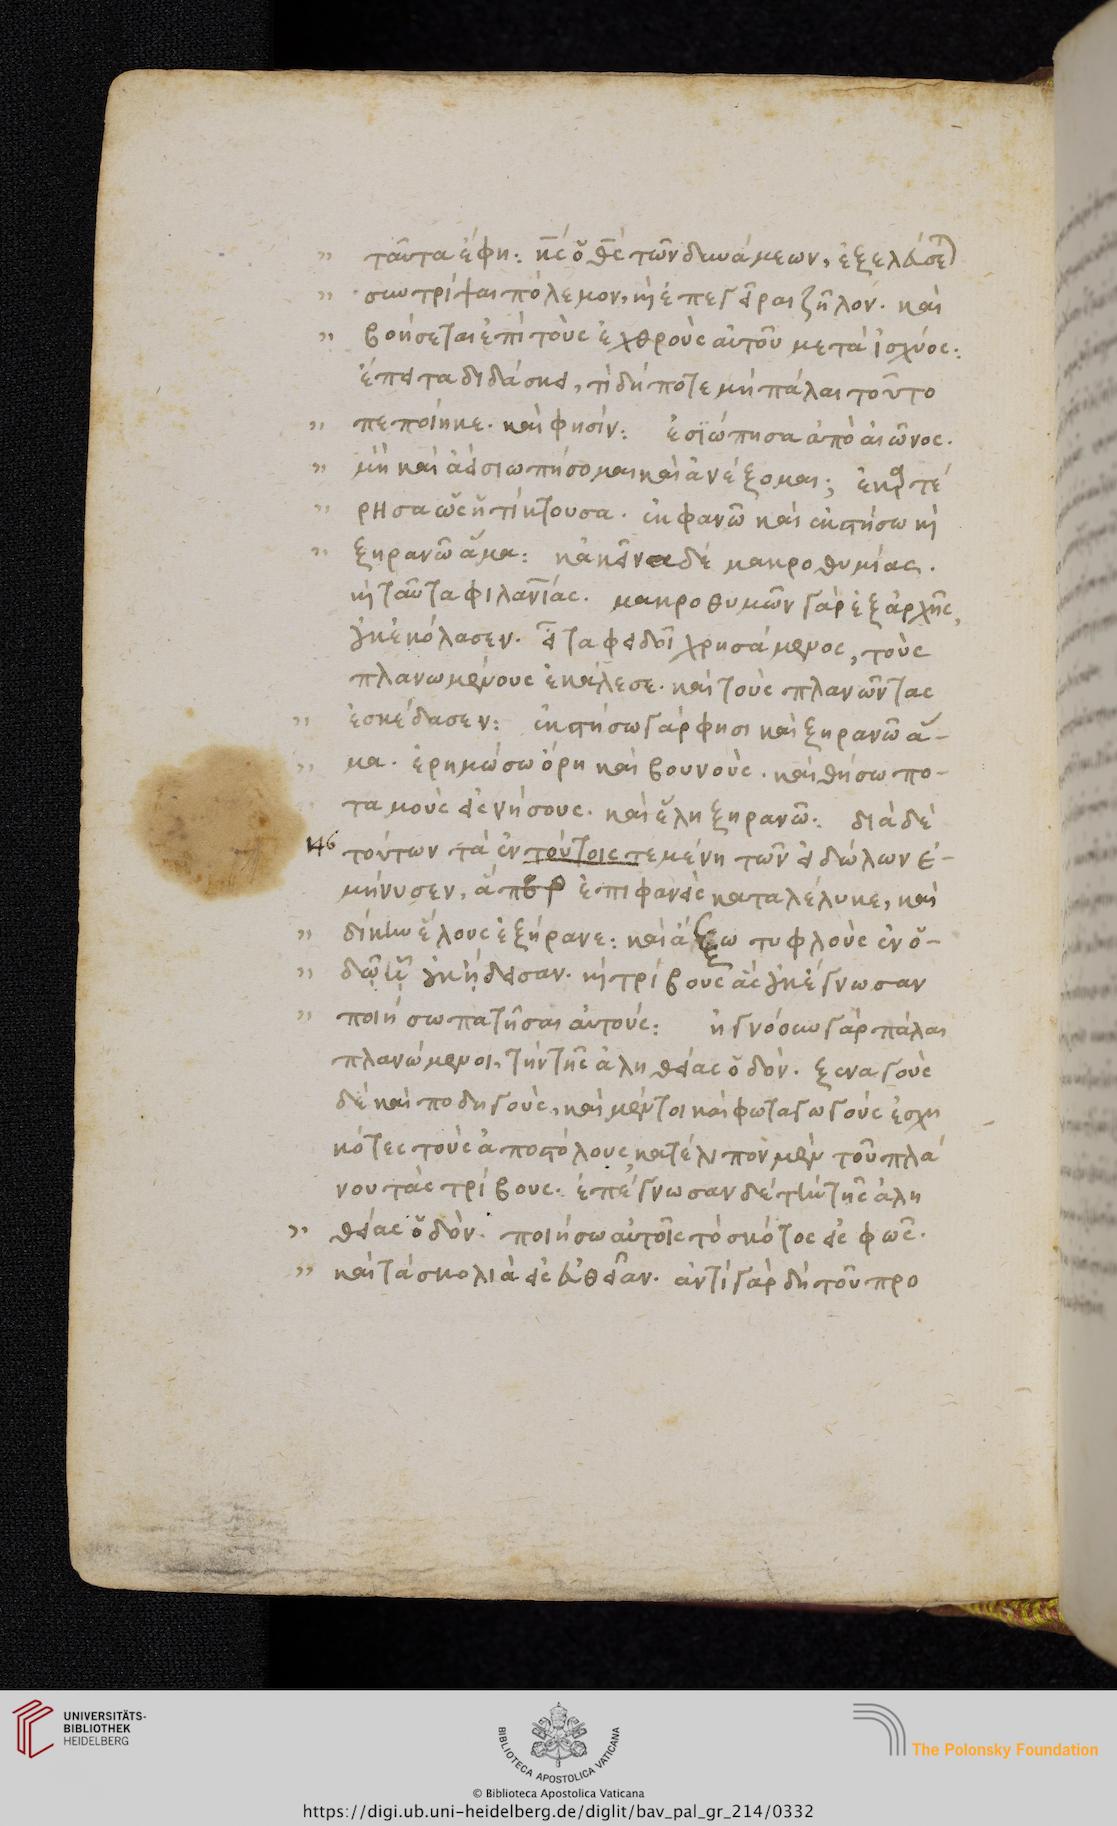 " ταῦτα ἔφη: κ̅ς̅ ὁ θ̅ς̅ τῶν δυνάμεων, ἐξελεύσε
" συντρίψαι πόλεμον, κὶ ἐπεγεῖραι ζῆλον. καὶ
" βοήσεται ἐπὶ τοὺς ἐχθροὺς αὐτοῦ μετὰ ἰσχύος:
ἔπειτα διδάσκει, τί δή ποτε μὴ πάλαι τοῦτο
" πεποίηκε. καὶ φησίν: ἐσϊώπησα ἀπὸ αἰῶνος.
" μὴ καὶ ἀεὶ σιωπήσομαι καὶ ἀνέξομαι; ἐκαρτέ
" ρησα ὡς ἡ τίκτουσα. ἐκφανῶ καὶ ἐκστήσω κὶ
" ξηρανῶ ἅμα: κἀκεῖνα δὲ μακροθυμίας.
κὶ ταῦτα φιλαν̅ίας. μακροθυμῶν γὰρ ἐξ ἀρχῆς,
οὐκ ἐκόλασεν. εἶτα φειδοῖ χρησάμενος, τοὺς
πλανωμένους ἐκάλεσε. καὶ τοὺς πλανῶντας
" ἐσκέδασεν: ἐκστήσω γάρ φησι καὶ ξηρανῶ ἅ-
" μα. ἐρημώσω ὄρη καὶ βουνούς. καὶ θήσω πο-
ταμοὺς εἰς νήσους. καὶ ἕλη ξηρανῶ: διὰ δὲ
146 τούτων τὰ ἐν τούτοις τεμένη τῶν εἰδώλων ἐ-
μήνυσεν, ἅπερ ἐπιφανεὶς καταλέλυκε, καὶ
" δίκην ἕλους ἐξήρανε: καὶ ἄξω τυφλοὺς ἐν ὁ-
" δῷ ᾗ οὐκ ᾔδεισαν. κὶ τρίβους ἃς οὐκ ἔγνωσαν
" ποιήσω πατῆσαι αὐτούς: ἠγνόουν γὰρ πάλαι
πλανώμενοι, τὴν τῆς ἀληθείας ὁδόν. ξεναγοὺς
δὲ καὶ ποδηγοὺς, καὶ μέντοι καὶ φωταγωγοὺς ἐσχη
κότες τοὺς ἀποστόλους, κατέλιπον μὲν τοῦ πλά
νου τὰς τρίβους. ἐπέγνωσαν δὲ τὴν τῆς ἀλη
" θείας ὁδόν. ποιήσω αὐτοῖς τὸ σκότος εἰς φῶς.
" καὶ τὰ σκολιὰ εἰς εὐθεῖαν. ἀντὶ γὰρ δὴ τοῦ προ
UNIVERSITÄTS-
BIBLIOTHEK
HEIDELBERG
BIBLIOTECA APOSTOLICA VATICANA
The Polonsky Foundation
© Biblioteca Apostolica Vaticana
https://digi.ub.uni-heidelberg.de/diglit/bav_pal_gr_214/0332